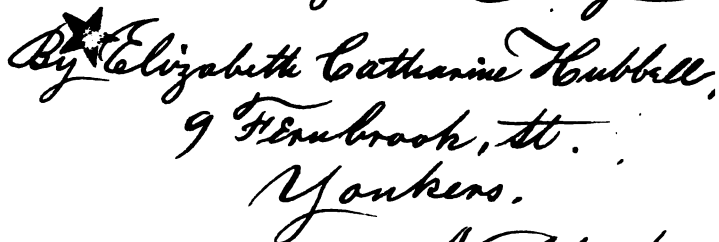 By Elizabeth Catharine Hubbell,
9 Fernbrook, St.
Yonkers.